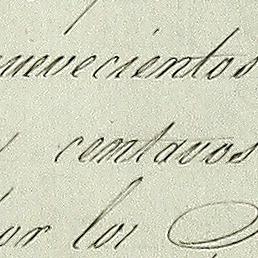 nuevecientos
centavos
por los